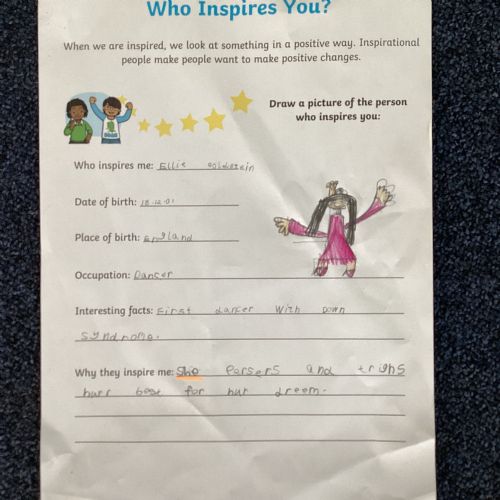 Who Inspires You?
When we are inspired, we look at something in a positive way. Inspirational
people make people want to make positive changes.
Draw a picture of the person
who inspires you:
Who inspires me: Ellie goldstein
Date of birth: 18.12.01
Place of birth: England
Occupation: Dancer
Interesting facts: First dancer With Down
syndrome.
Why they inspire me: Sho Persers and trighs
hurr best for hur dreem.